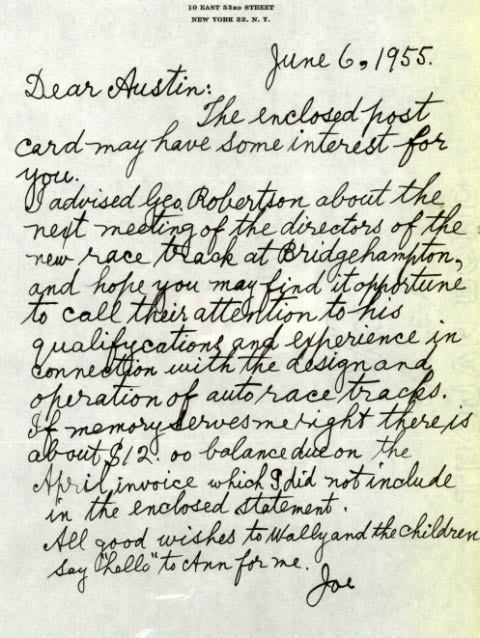 10 EAST 53RD STREET
NEW YORK 22. N. Y.
June 6, 1955.
Dear Austin:
The enclosed post
card may have some interest for
you.
I advised Geo. Robertson about the
next meeting of the directors of the
new race track at Bridgehampton,
and hope you may find it opportune
to call their attention to his
qualifycations and experience in
connection with the design and
operation of auto race tracks.
If memory serves me right there is
about $12.00 balance due on the
April invoice which I did not include
in the enclosed statement.
All good wishes to Wally and the children
say "hello" to Ann for me.
Joe